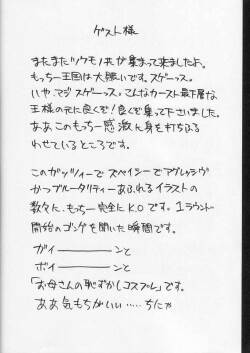 ゲスト様
またまたツワモノ共が集まって来ましたよ。
もっちー王国は大騒いです。スゲーっス。
いや、マジスゲーっス。こんなカースト最下層な
王様の元に良くぞ!良くぞ集って下さいました。
ああこのもっちー感激に身を打ちふる
わせているところです。
このガッツィーでスペイシーでアグレッシヴ
かつブルータリティーあふれるイラストの
数々に、もっちー完全にK.Oです。1ラウンド
開始のゴングを聞いた瞬間です。
ガィーーーーンと
ボィーーーーンと
「お母さんの恥ずかしコスプレ」です。
ああ気もちがいい‥‥‥